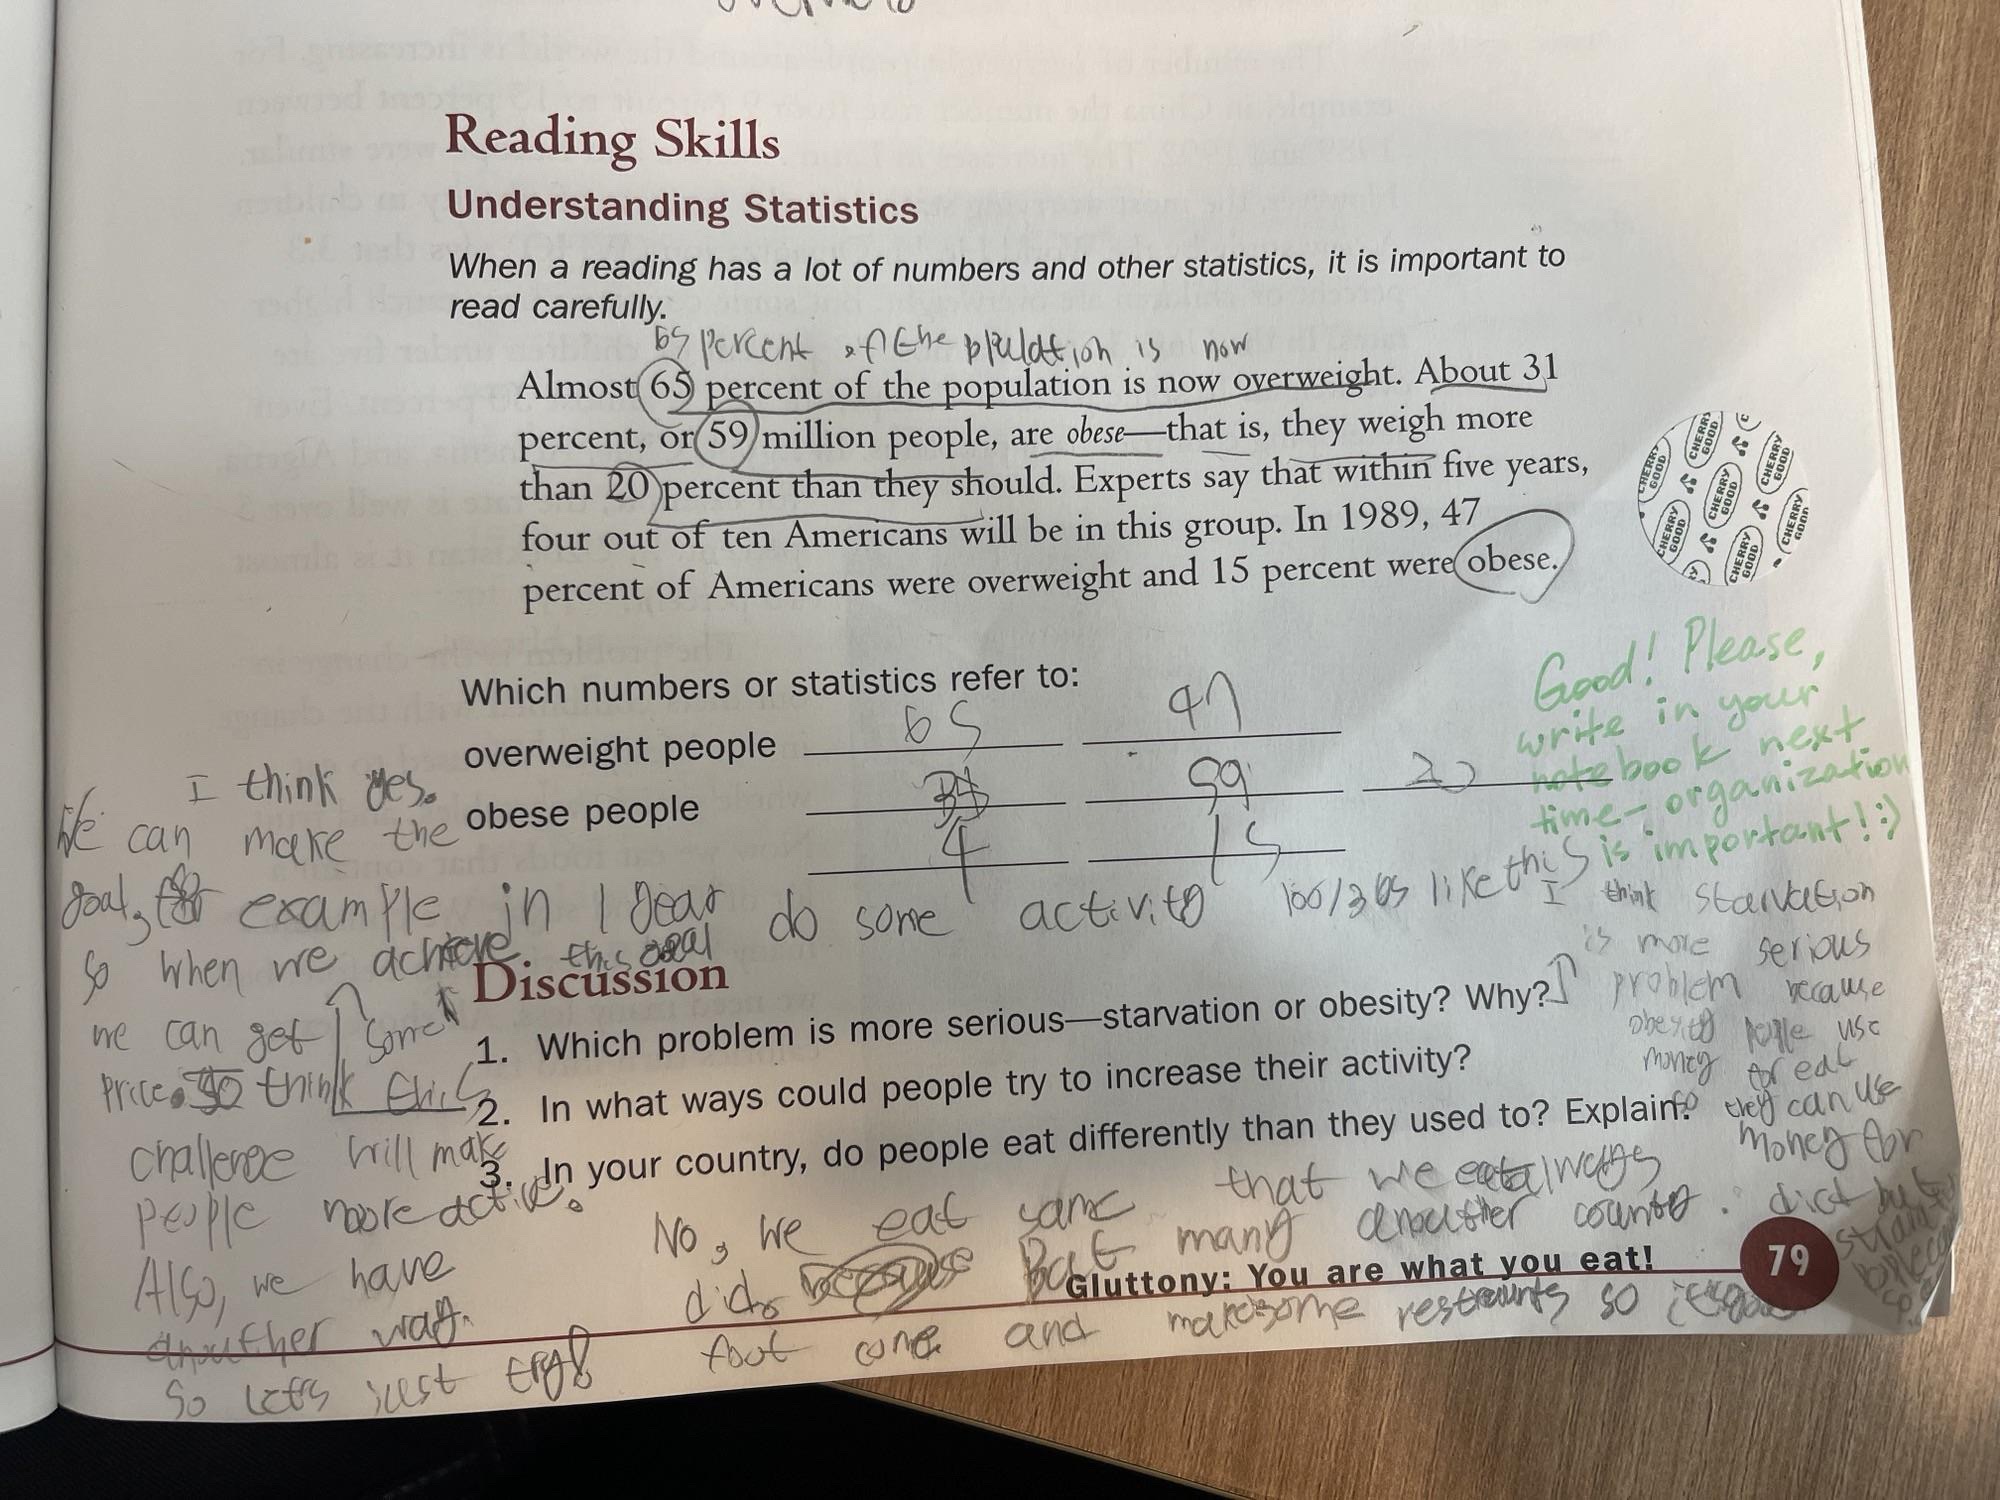 Reading Skills
Understanding Statistics
When a reading has a lot of numbers and other statistics, it is important to
read carefully.
65 percent of the plulation is now
Almost 65 percent of the population is now overweight. About 31
percent, or 59 million people, are obese—that is, they weigh more
than 20 percent than they should. Experts say that within five years,
four out of ten Americans will be in this group. In 1989, 47
percent of Americans were overweight and 15 percent were obese.
CHERRY GOOD
Good! Please,
write in your
notebook next
time - organization
is important! :)
Which numbers or statistics refer to:
overweight people 65 47
obese people 59 20
4 15
I think yes.
We can make the
goal, example in 1 year do some activity 100/365 like this
so when we achieve this goal
we can get some
price. So think this
challenge will make
people more active.
Also, we have
anouther way.
So lets just try!
I think starvation
is more serious
problem because
obesity people use
money for eat
so they can use
money for
diet but
Discussion
1. Which problem is more serious—starvation or obesity? Why?
2. In what ways could people try to increase their activity?
3. In your country, do people eat differently than they used to? Explain.
No, we eat same that we eat always
did. But many anouther country
foot come and make some restraunts so
Gluttony: You are what you eat!
79